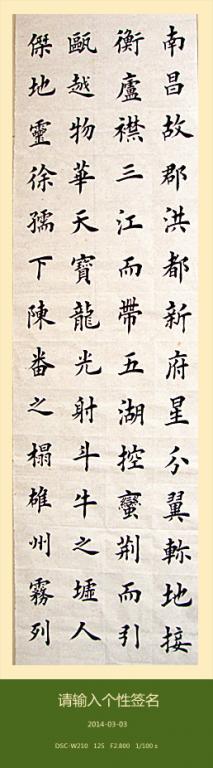 南昌故郡洪都新府星分翼軫地接
衡廬襟三江而帶五湖控蠻荊而引
甌越物華天寶龍光射斗牛之墟人
傑地靈徐孺下陳番之榻雄州霧列
请输入个性签名
2014-03-03
DSC-W210 125 F2.800 1/100 s